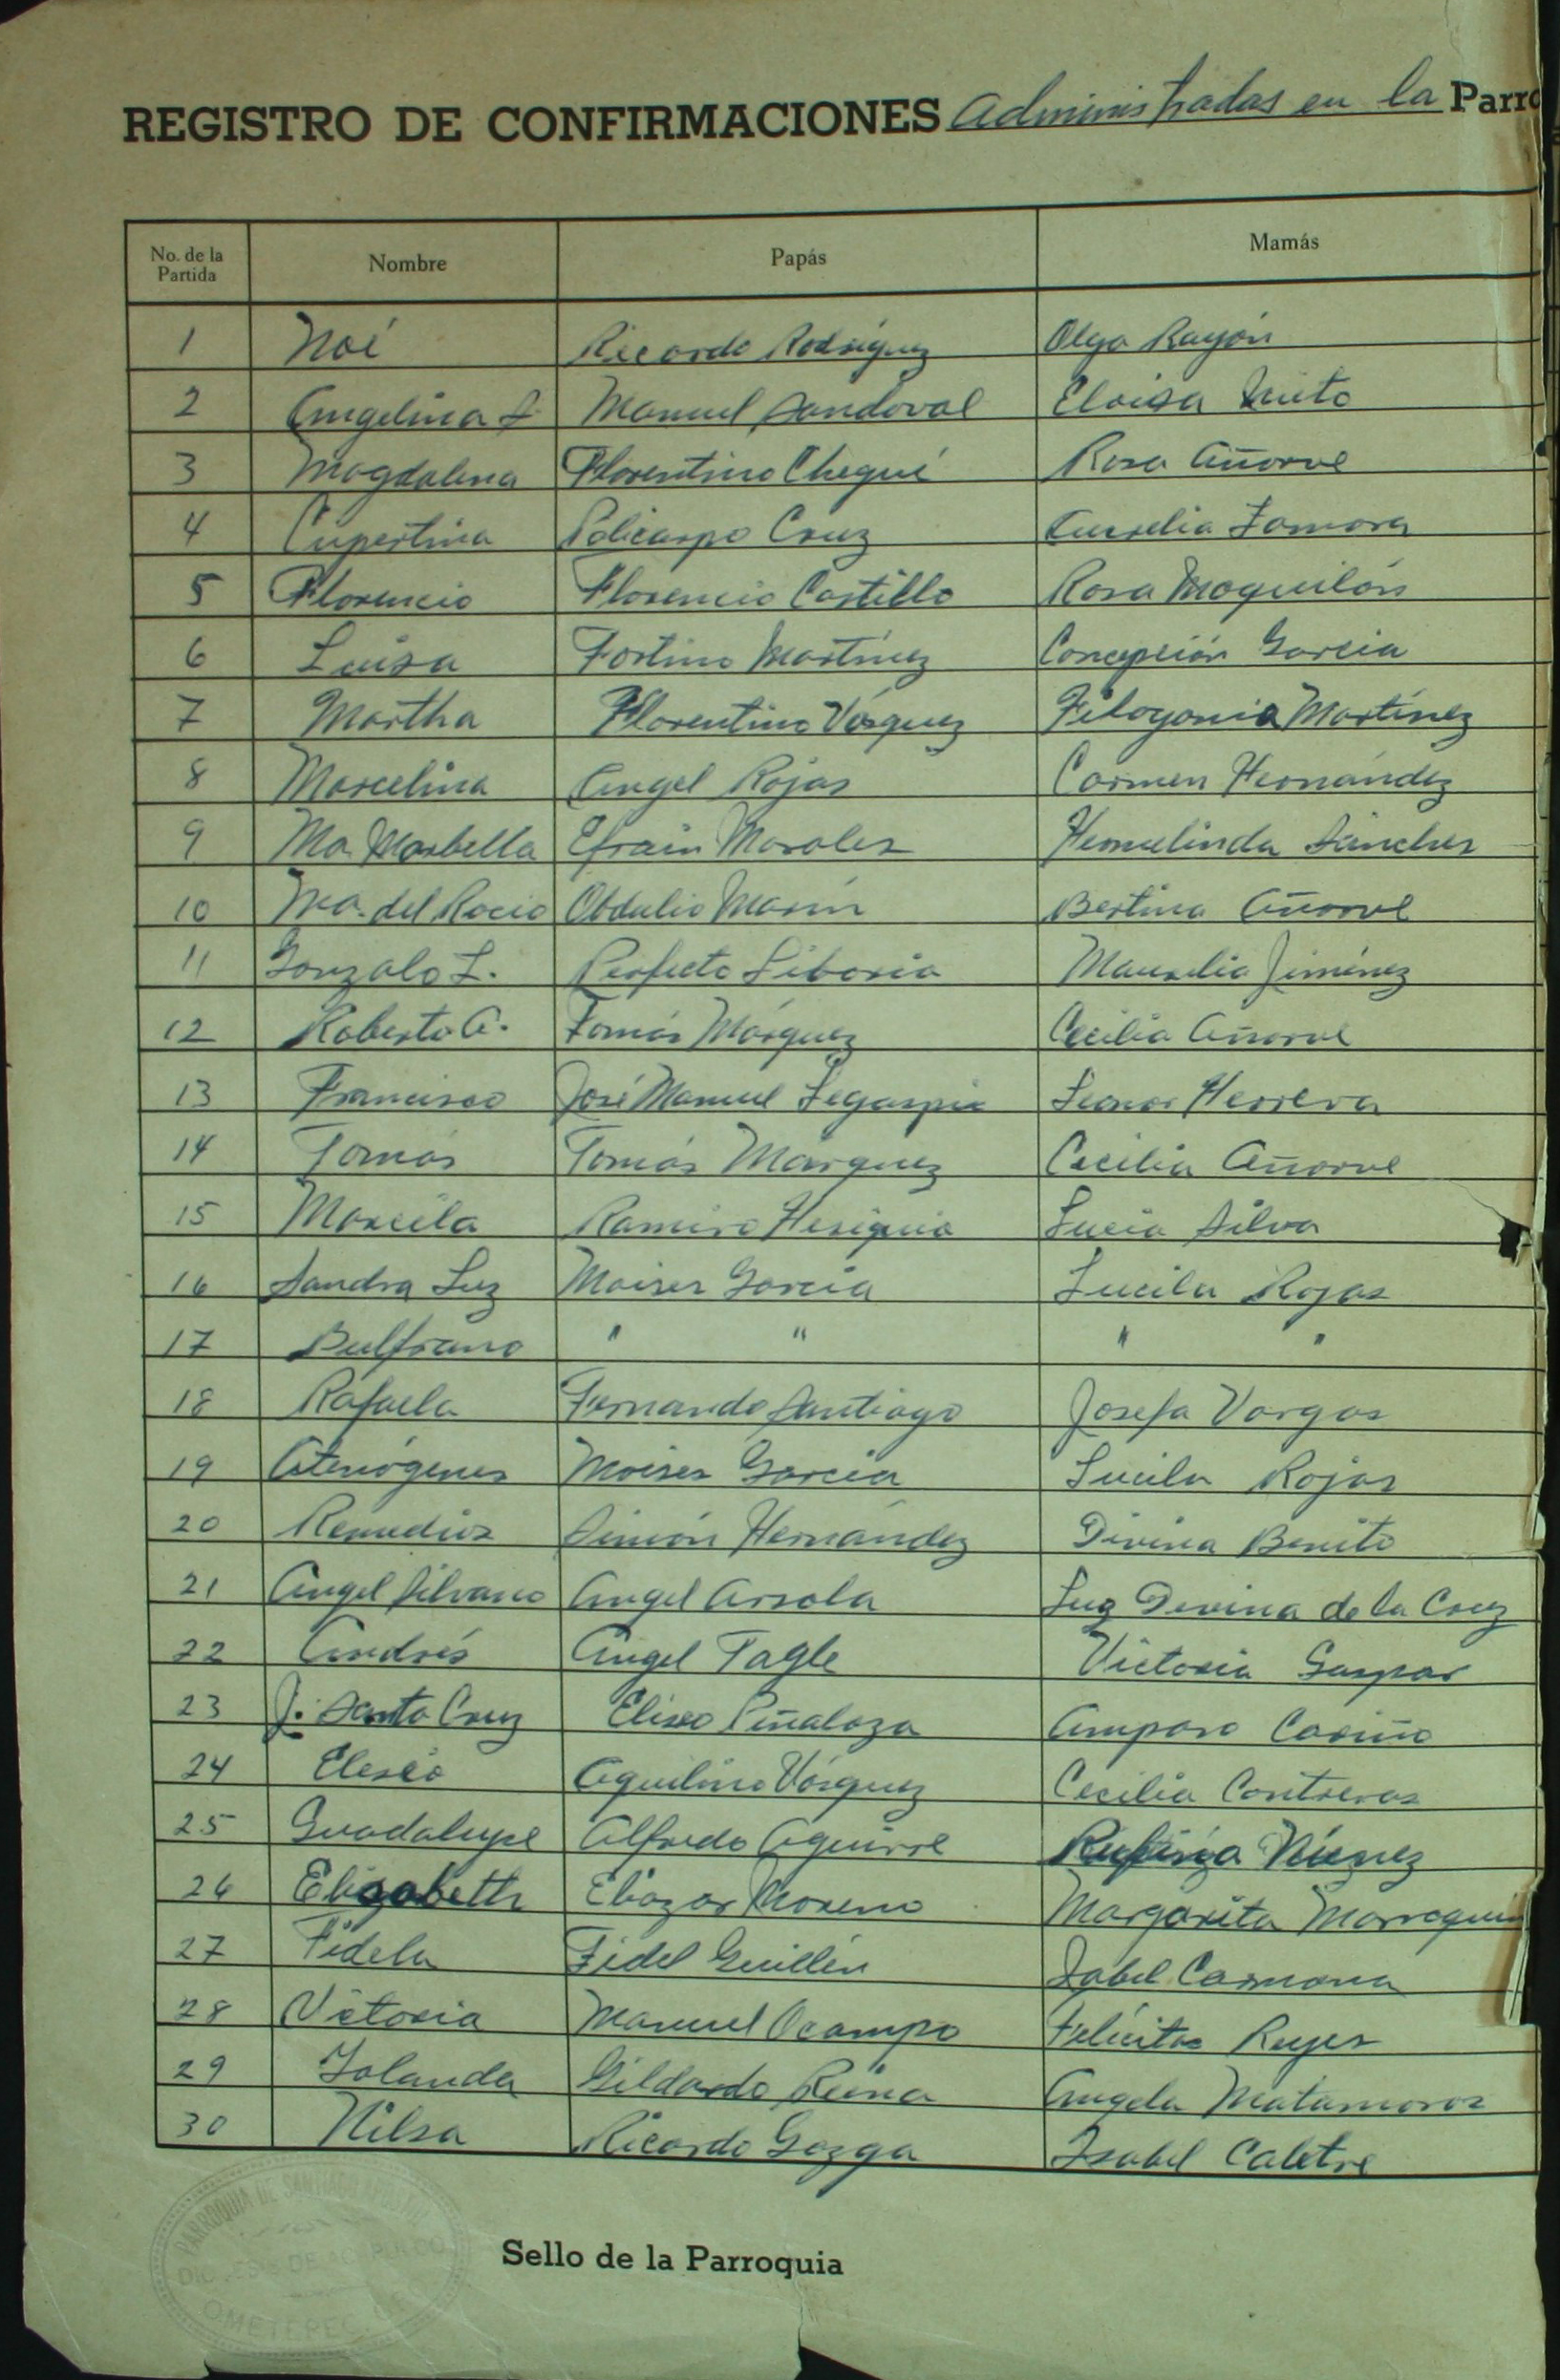 REGISTRO DE CONFIRMACIONES Administradas en la Parro
No. de la Partida Nombre Papás Mamás
1 Noé Ricardo Rodríguez Olga Rayón
2 Angelina S. Manuel Sandoval Eloisa Nieto
3 Magdalena Florentino Chegué Rosa Añorve
4 Cupertina Policarpo Cruz Aurelia Zamora
5 Florencio Florencio Castillo Rosa Moquilón
6 Luisa Fortino Martínez Concepción Garcia
7 Martha Florentino Vásquez Filogonia Martínez
8 Marcelina Angel Rojas Carmen Hernández
9 Ma. Marbella Efrain Morales Hermelinda Sánches
10 Ma. del Rocio Obdulio Marín Bertina Añorve
11 Gonzalo L. Perfecto Liboria Maurelia Jiménez
12 Roberto A. Tomás Márquez Cecilia Añorve
13 Francisco José Manuel Legaspi Leonor Herrera
14 Tomás Tomás Márquez Cecilia Añorve
15 Marcila Ramiro Hesiquio Lucia Silva
16 Sandra Luz Moises García Lucila Rojas
17 Bulfrano " " " "
18 Rafaela Fernando Santiago Josefa Vargas
19 Atenógenes Moises Garcia Lucila Rojas
20 Remedios Simón Hernández Divina Benito
21 Angel Silvano Angel Arsola Luz Divina de la Cruz
22 Andrés Angel Tagle Victoria Gaspar
23 J. Santa Cruz Eliseo Piñaloza Amparo Cariño
24 Eleseo Aquilino Vásquez Cecilia Contreras
25 Guadalupe Alfredo Aguirre Núñez
26 Elizabeth Eliazar Moreno Margarita Marroquin
27 Fidela Fidel Guillén Isabel Carmona
28 Victoria Manuel Ocampo Felicitas Reyes
29 Yolanda Gildardo Reina Angela Matamoros
30 Nilsa Ricardo Gazga Isabel Caletre
PARROQUIA DE SANTIAGO APOSTOL
DIOCESIS DE ACAPULCO
OMETEPEC, GRO.
Sello de la Parroquia